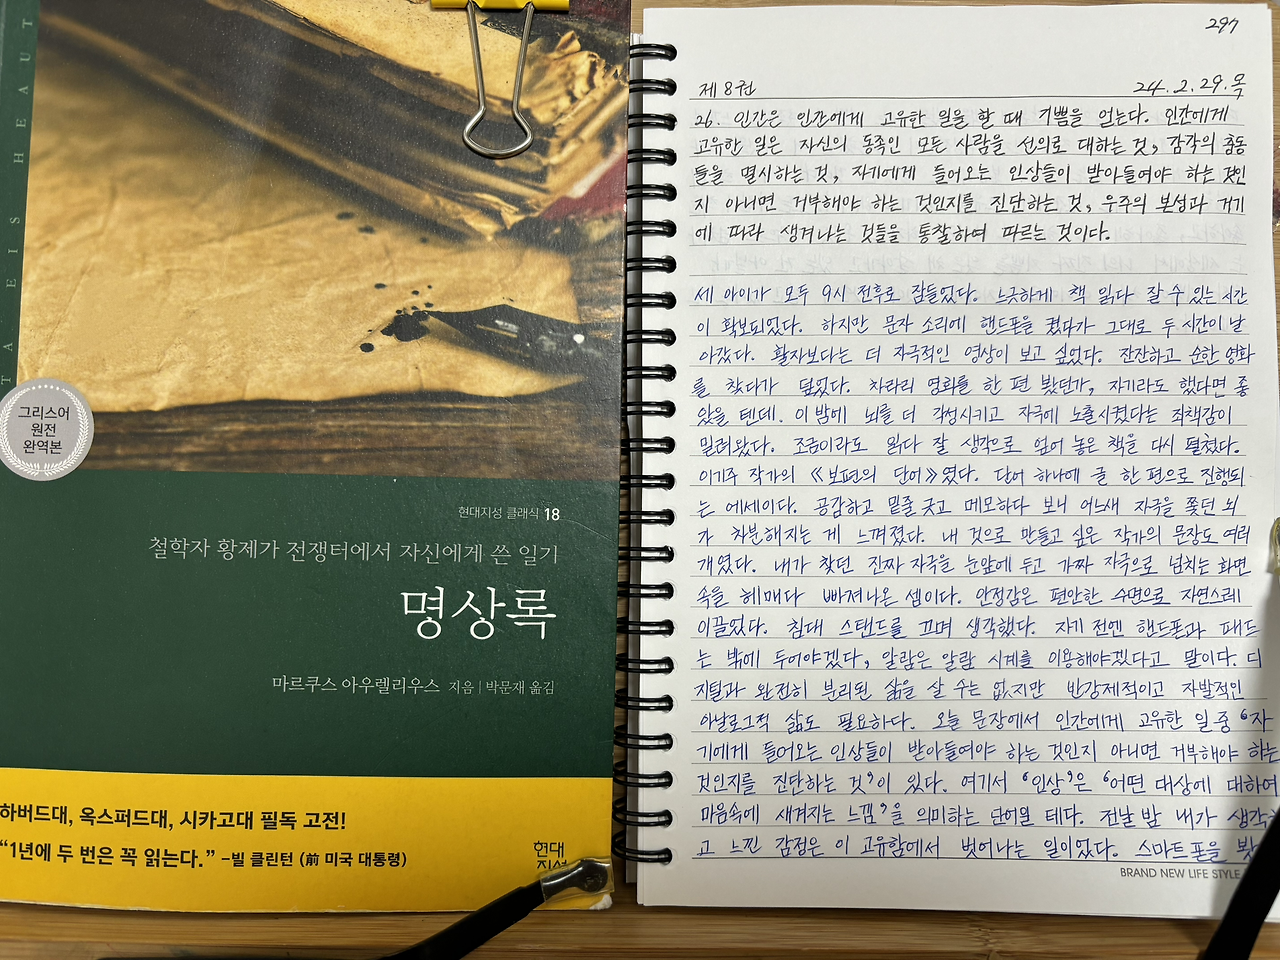 TA EIS HEAUT
그리스어
원전
완역본
현대지성 클래식 18
철학자 황제가 전쟁터에서 자신에게 쓴 일기
명상록
마르쿠스 아우렐리우스 지음 | 박문재 옮김
하버드대, 옥스퍼드대, 시카고대 필독 고전!
“1년에 두 번은 꼭 읽는다.” –빌 클린턴 (前 미국 대통령)
현대
지성
297
제 8권 24. 2. 29. 목
26. 인간은 인간에게 고유한 일을 할 때 기쁨을 얻는다. 인간에게
고유한 일은 자신의 동족인 모든 사람을 선의로 대하는 것, 감각의 충동
들을 멸시하는 것, 자기에게 들어오는 인상들이 받아들여야 하는 것인
지 아니면 거부해야 하는 것인지를 진단하는 것, 우주의 본성과 거기
에 따라 생겨나는 것들을 통찰하여 따르는 것이다.
세 아이가 모두 9시 전후로 잠들었다. 느긋하게 책 읽다 잘 수 있는 시간
이 확보되었다. 하지만 문자 소리에 핸드폰을 켰다가 그대로 두 시간이 날
아갔다. 활자보다는 더 자극적인 영상이 보고 싶었다. 잔잔하고 순한 영화
를 찾다가 덮었다. 차라리 영화를 한 편 봤던가, 자기라도 했다면 좋
았을 텐데. 이 밤에 뇌를 더 각성시키고 자극에 노출시켰다는 죄책감이
밀려왔다. 조금이라도 읽다 잘 생각으로 엎어 놓은 책을 다시 펼쳤다.
이기주 작가의 《보편의 단어》였다. 단어 하나에 글 한 편으로 진행되
는 에세이다. 공감하고 밑줄 긋고 메모하다 보니 어느새 자극을 쫓던 뇌
가 차분해지는 게 느껴졌다. 내 것으로 만들고 싶은 작가의 문장도 여러
개였다. 내가 찾던 진짜 자극을 눈앞에 두고 가짜 자극으로 넘치는 화면
속을 헤매다 빠져나온 셈이다. 안정감은 편안한 수면으로 자연스레
이끌었다. 침대 스탠드를 끄며 생각했다. 자기 전엔 핸드폰과 패드
는 밖에 두어야겠다, 알람은 알람 시계를 이용해야겠다고 말이다. 디
지털과 완전히 분리된 삶을 살 수는 없지만 반강제적이고 자발적인
아날로그적 삶도 필요하다. 오늘 문장에서 인간에게 고유한 일 중 ‘자
기에게 들어오는 인상들이 받아들여야 하는 것인지 아니면 거부해야 하는
것인지를 진단하는 것’이 있다. 여기서 ‘인상’은 ‘어떤 대상에 대하여
마음속에 새겨지는 느낌’을 의미하는 단어일 테다. 전날 밤 내가 생각하
고 느낀 감정은 이 고유함에서 벗어나는 일이었다. 스마트폰을 봤
BRAND NEW LIFE STYLE